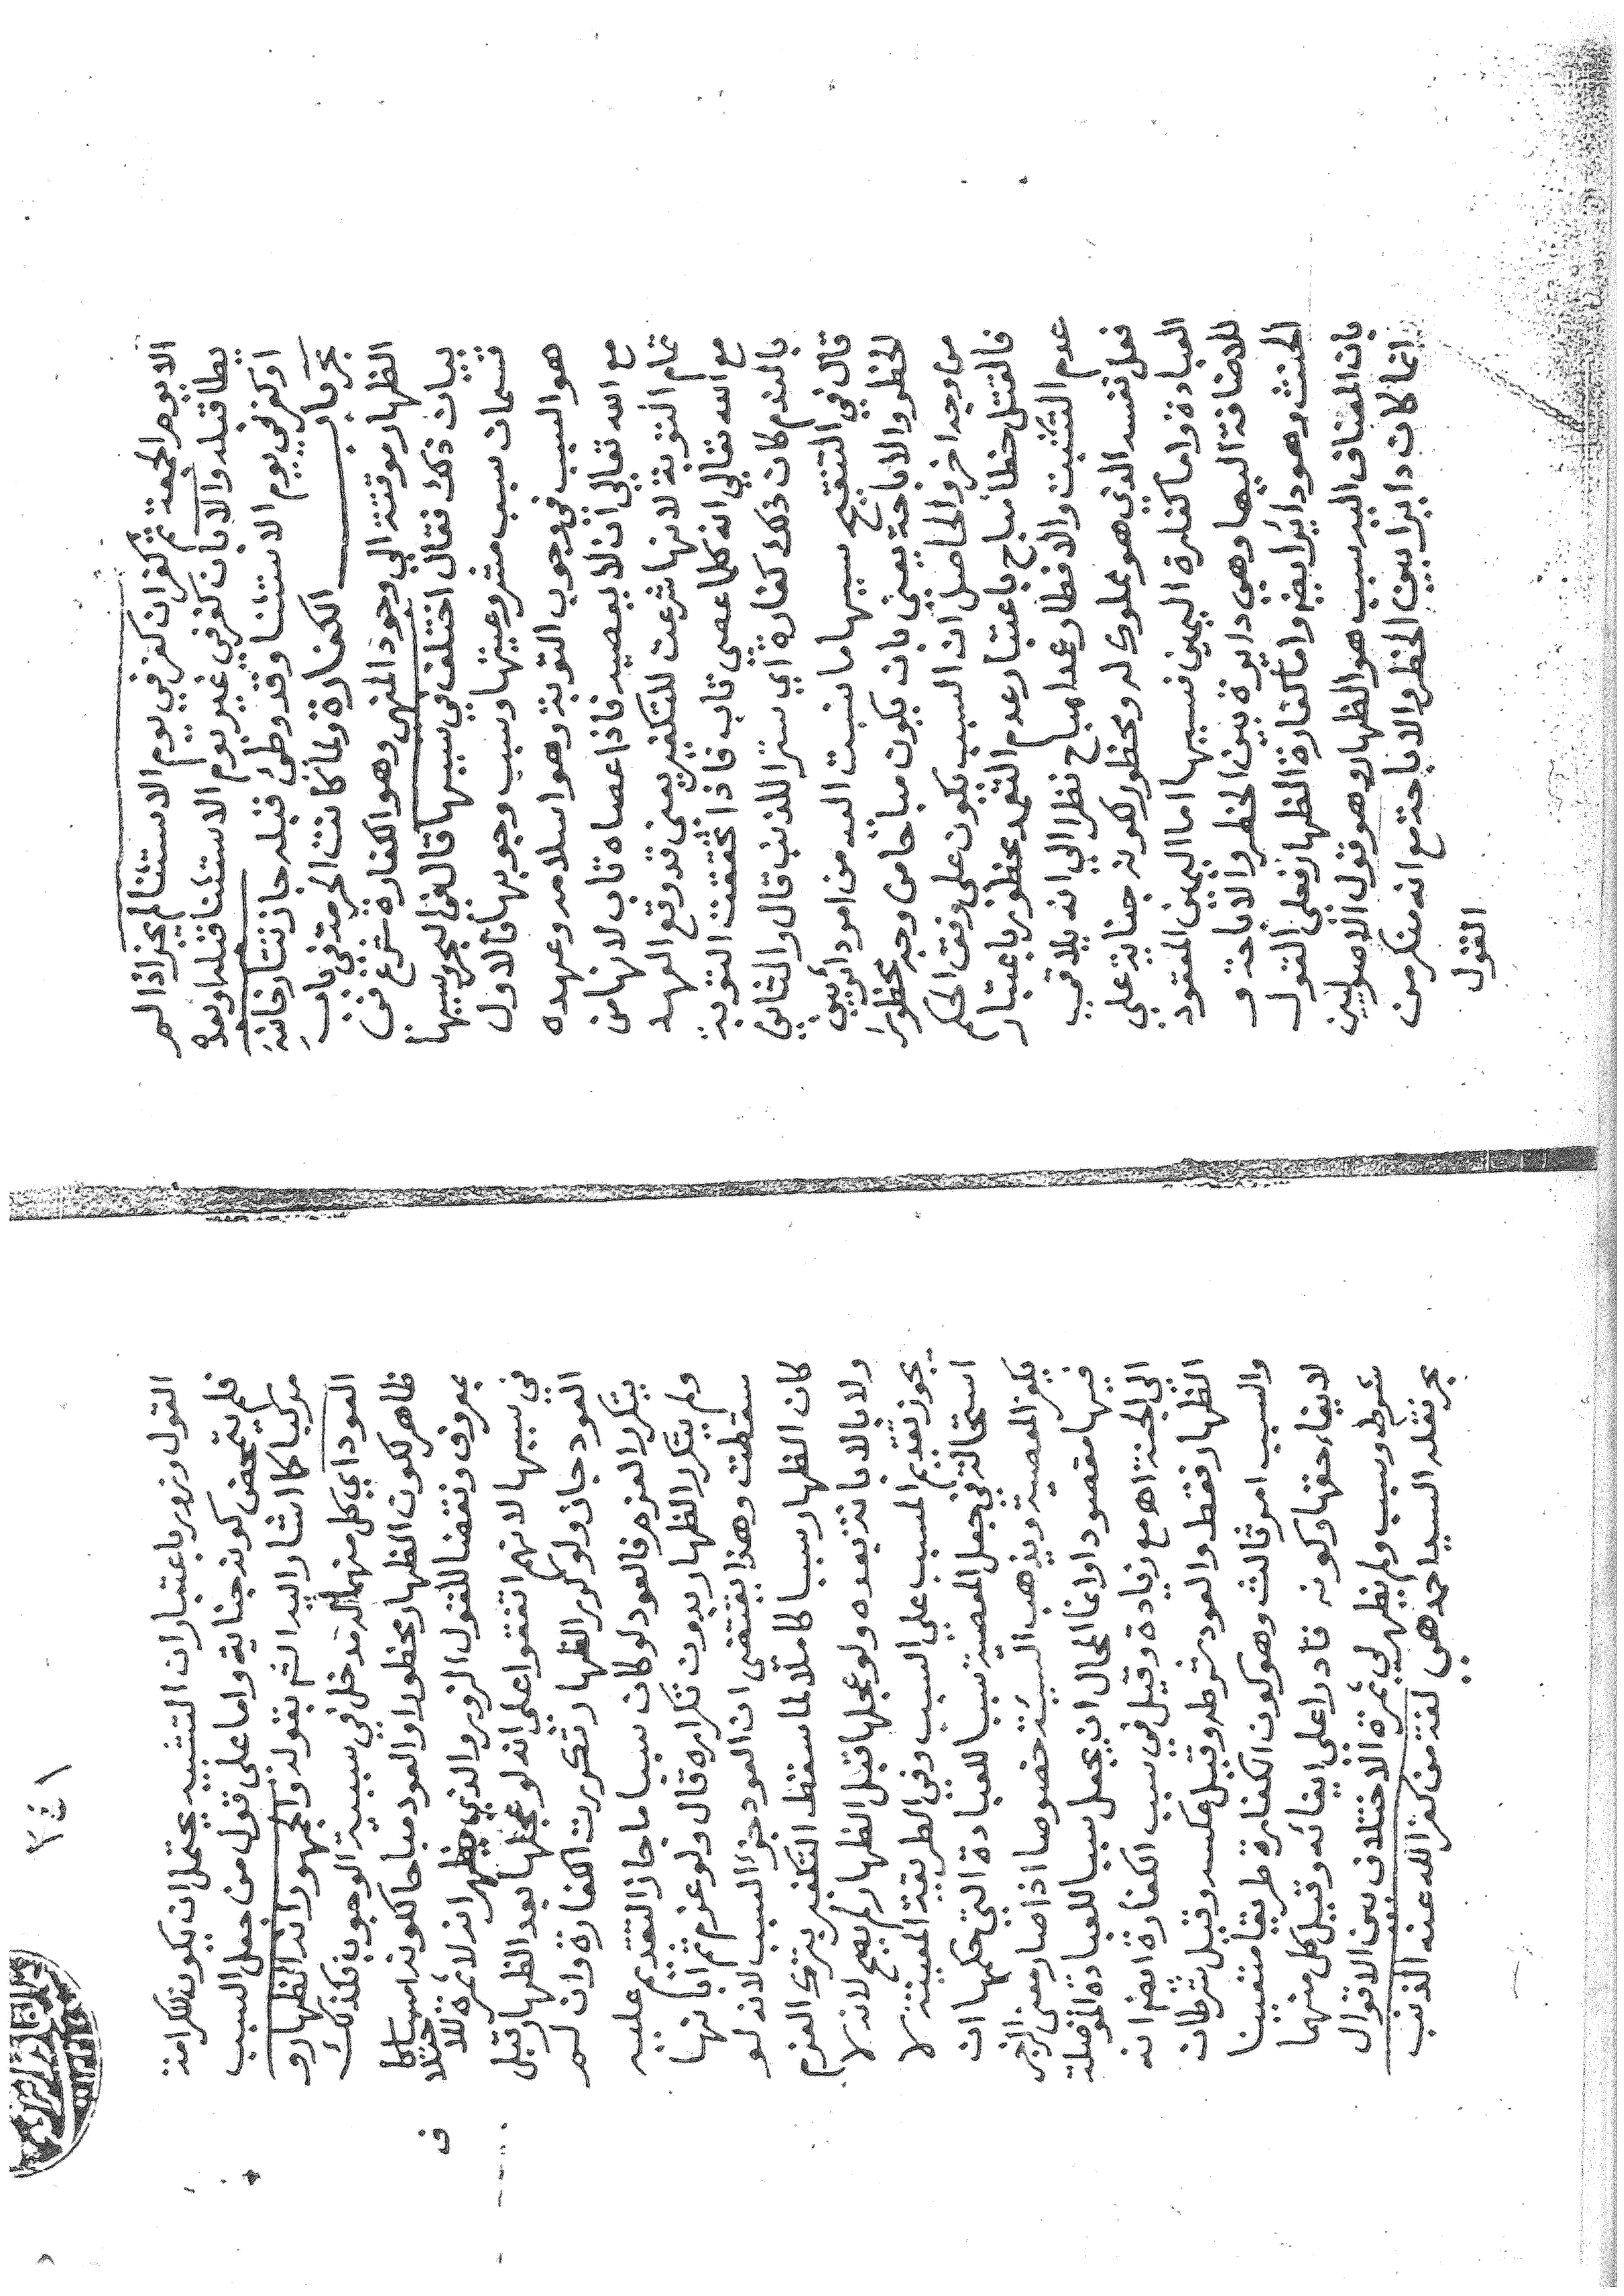 الا يوم الجمعة ثم كفر ان كفر في يوم الاستثنا لم يجز اذا لم
يطا قبله والا بان كفر في غير يوم الاستثنا قبله او بعده
او كفر في يوم الاستثنا وقد وطئ قبله جاز تتارخانية
بحر باب الكفارة ولما كانت الحرمة في باب
الظهار موقتة الي وجود المنهي وهو الكفارة شرع في
بيان ذلك فقال اختلف في سببها قال في البحر سببها
قسمان سبب مشروعيتها وسبب وجوبها فالاول
هو السبب في وجوب التوبة وهو اسلامه وعهده
مع الله تعالي ان لا يعصيه فاذا عصاه تاب لانها من
تمام التوبة لانها شرعت للتكفير يعني قد وقع العهد
مع الله تعالي انه كلما عصى تاب فاذا تحققت التوبة
بالندم كان ذلك كفارة اي سترا للذنب قال والثاني
قال في التنقيح سببها ما نسبت اليه من امر دائر بين
الحظر والاباحة يعني بان يكون مباحا من وجه محظورا
من وجه اخر والحاصل ان السبب يكون على وفق الحكم
فالقتل خطأ مباح باعتبار عدم التعمد محظور باعتبار
عدم التثبت والافطار عمدا مباح نظرا الي انه يلاقي
فعل نفسه الذي هو مملوك له ومحظور لكونه جناية علي
العبادة واما كفارة اليمين فسببها اما اليمين المعقود
للاضافة اليها وهي دايرة بين الحظر والاباحة و
الحنث وهو دائر ايضا واما كفارة الظهار فعلى القول
بان المضاف اليه سبب هو الظهار وهو قول الاصوليين
انما كان دايرا بين الحظر والاباحة مع انه منكر من
القول
٢٤١
القول وزور باعتبار ان التشبيه يحتمل ان يكون للكرامة
فلم يتمحض كونه جناية واما على قول من جعل السبب
مركبا كما اشار اليه الشم بقوله والجمهور انه الظهار و
العود اي كل منهما له مدخل في سببية الوجوب فكذلك
ظاهر لكون الظهار محظورا والعود مباحا لكونه امساكا
بمعروف ونقضا للقول الزور والذي يظهر انه لا ثمرة للاختلاف
في سببها لانهم اتفقوا على انه لو عجلها بعد الظهار قبل
العود جاز ولو كرر الظهار تكررت الكفارة وان لم
يتكرر العزم فالعود لو كان سببا ما جاز التقديم عليه
ولم يتكرر الظهار بدون تكراره قال ولو عزم ثم ابانها
سقطت وهذا يقتضى ان العود جزؤ السبب لانه لو
كان الظهار سببا كاملا لما سقط التكفير بترك العزم
ولا بالابانة بعده ولو عجلها قبل الظهار لم يصح لانه لا
يجوز تقديم المسبب على السبب وفي الطريقة المعينية لا
استحالة في جعل المعصية سببا للعبادة التي حكمها ان
يكفر المعصية ويذهب السيئة خصوصا اذا صار معنى الزجر
فيها مقصودا وانما المحال ان يجعل سببا للعبادة الموصلة
الى الجنة اهـ مع زيادة وقيل في سبب الكفارة ايضا انه
الظهار فقط والعود شرط وقيل عكسه وقيل شرطان
والسبب امر ثالث وهو كون الكفارة طريقا متعينا
لايفاء حقها وكونه قادرا على ايفائه وقيل كل منهما
شرط وسبب ولم يظهر لي ثمرة الاختلاف بين الاقوال
بحر نقله السيد احمد هي لغة من كفر الله عنه الذنب